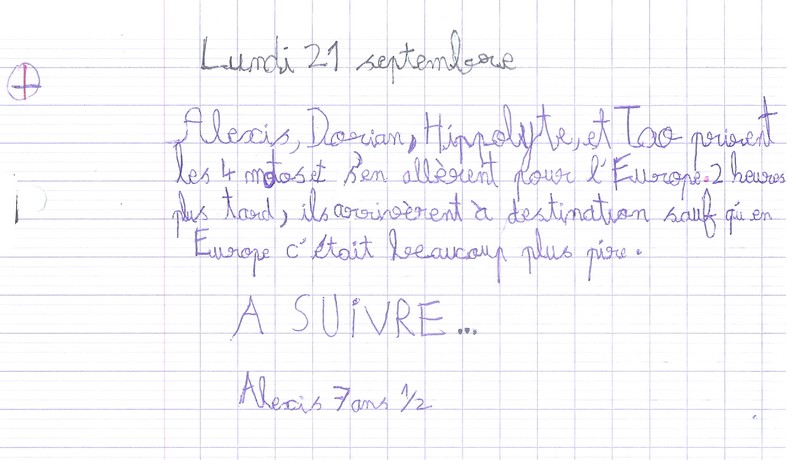 Lundi 21 septembre
Alexis, Dorian, Hippolyte, et Tao prirent
les 4 motos et s'en allèrent pour l'Europe. 2 heures
plus tard, ils arrivèrent à destination sauf qu'en
Europe c'était beaucoup plus pire.
A SUIVRE...
Alexis 7 ans 1/2